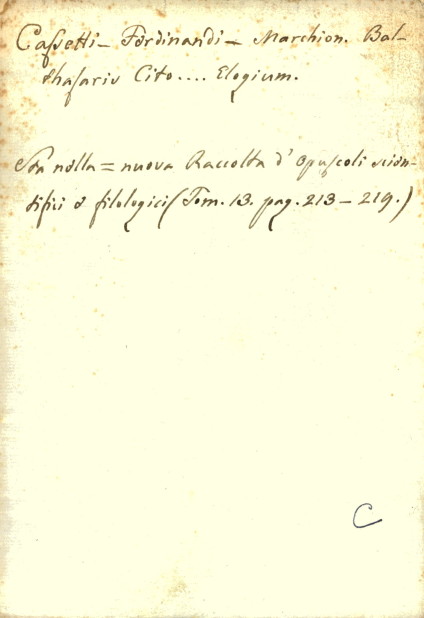 Cassetti - Ferdinandi - Marchion. Bal-
thasaris Cito.... Elogium.
Sta nella = nuova Raccolta d'Opuscoli scien-
tifici e filologici (Tom. 13. pag. 213 - 219.)
C